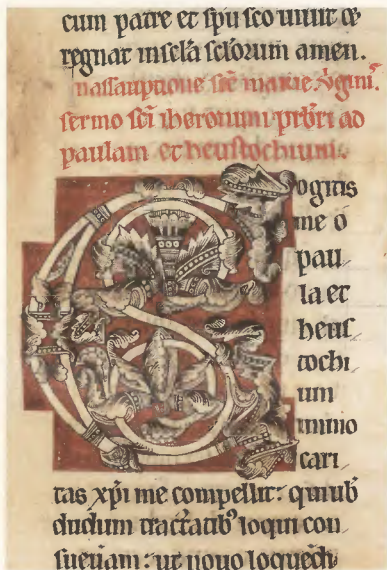 cum patre et spu sco uiuit et
regnat in scla sclorum amen.
n assumptione sce marie v̾gini.
sermo sci iheronimi prbri ad
paulam et heustochium.
Cogitis
me o
pau
la et
heus
tochi
um
immo
cari
tas xpi me compellit: qui uob
dudum tractatibꝰ loqui con
sueuam: ut nouo loquendi